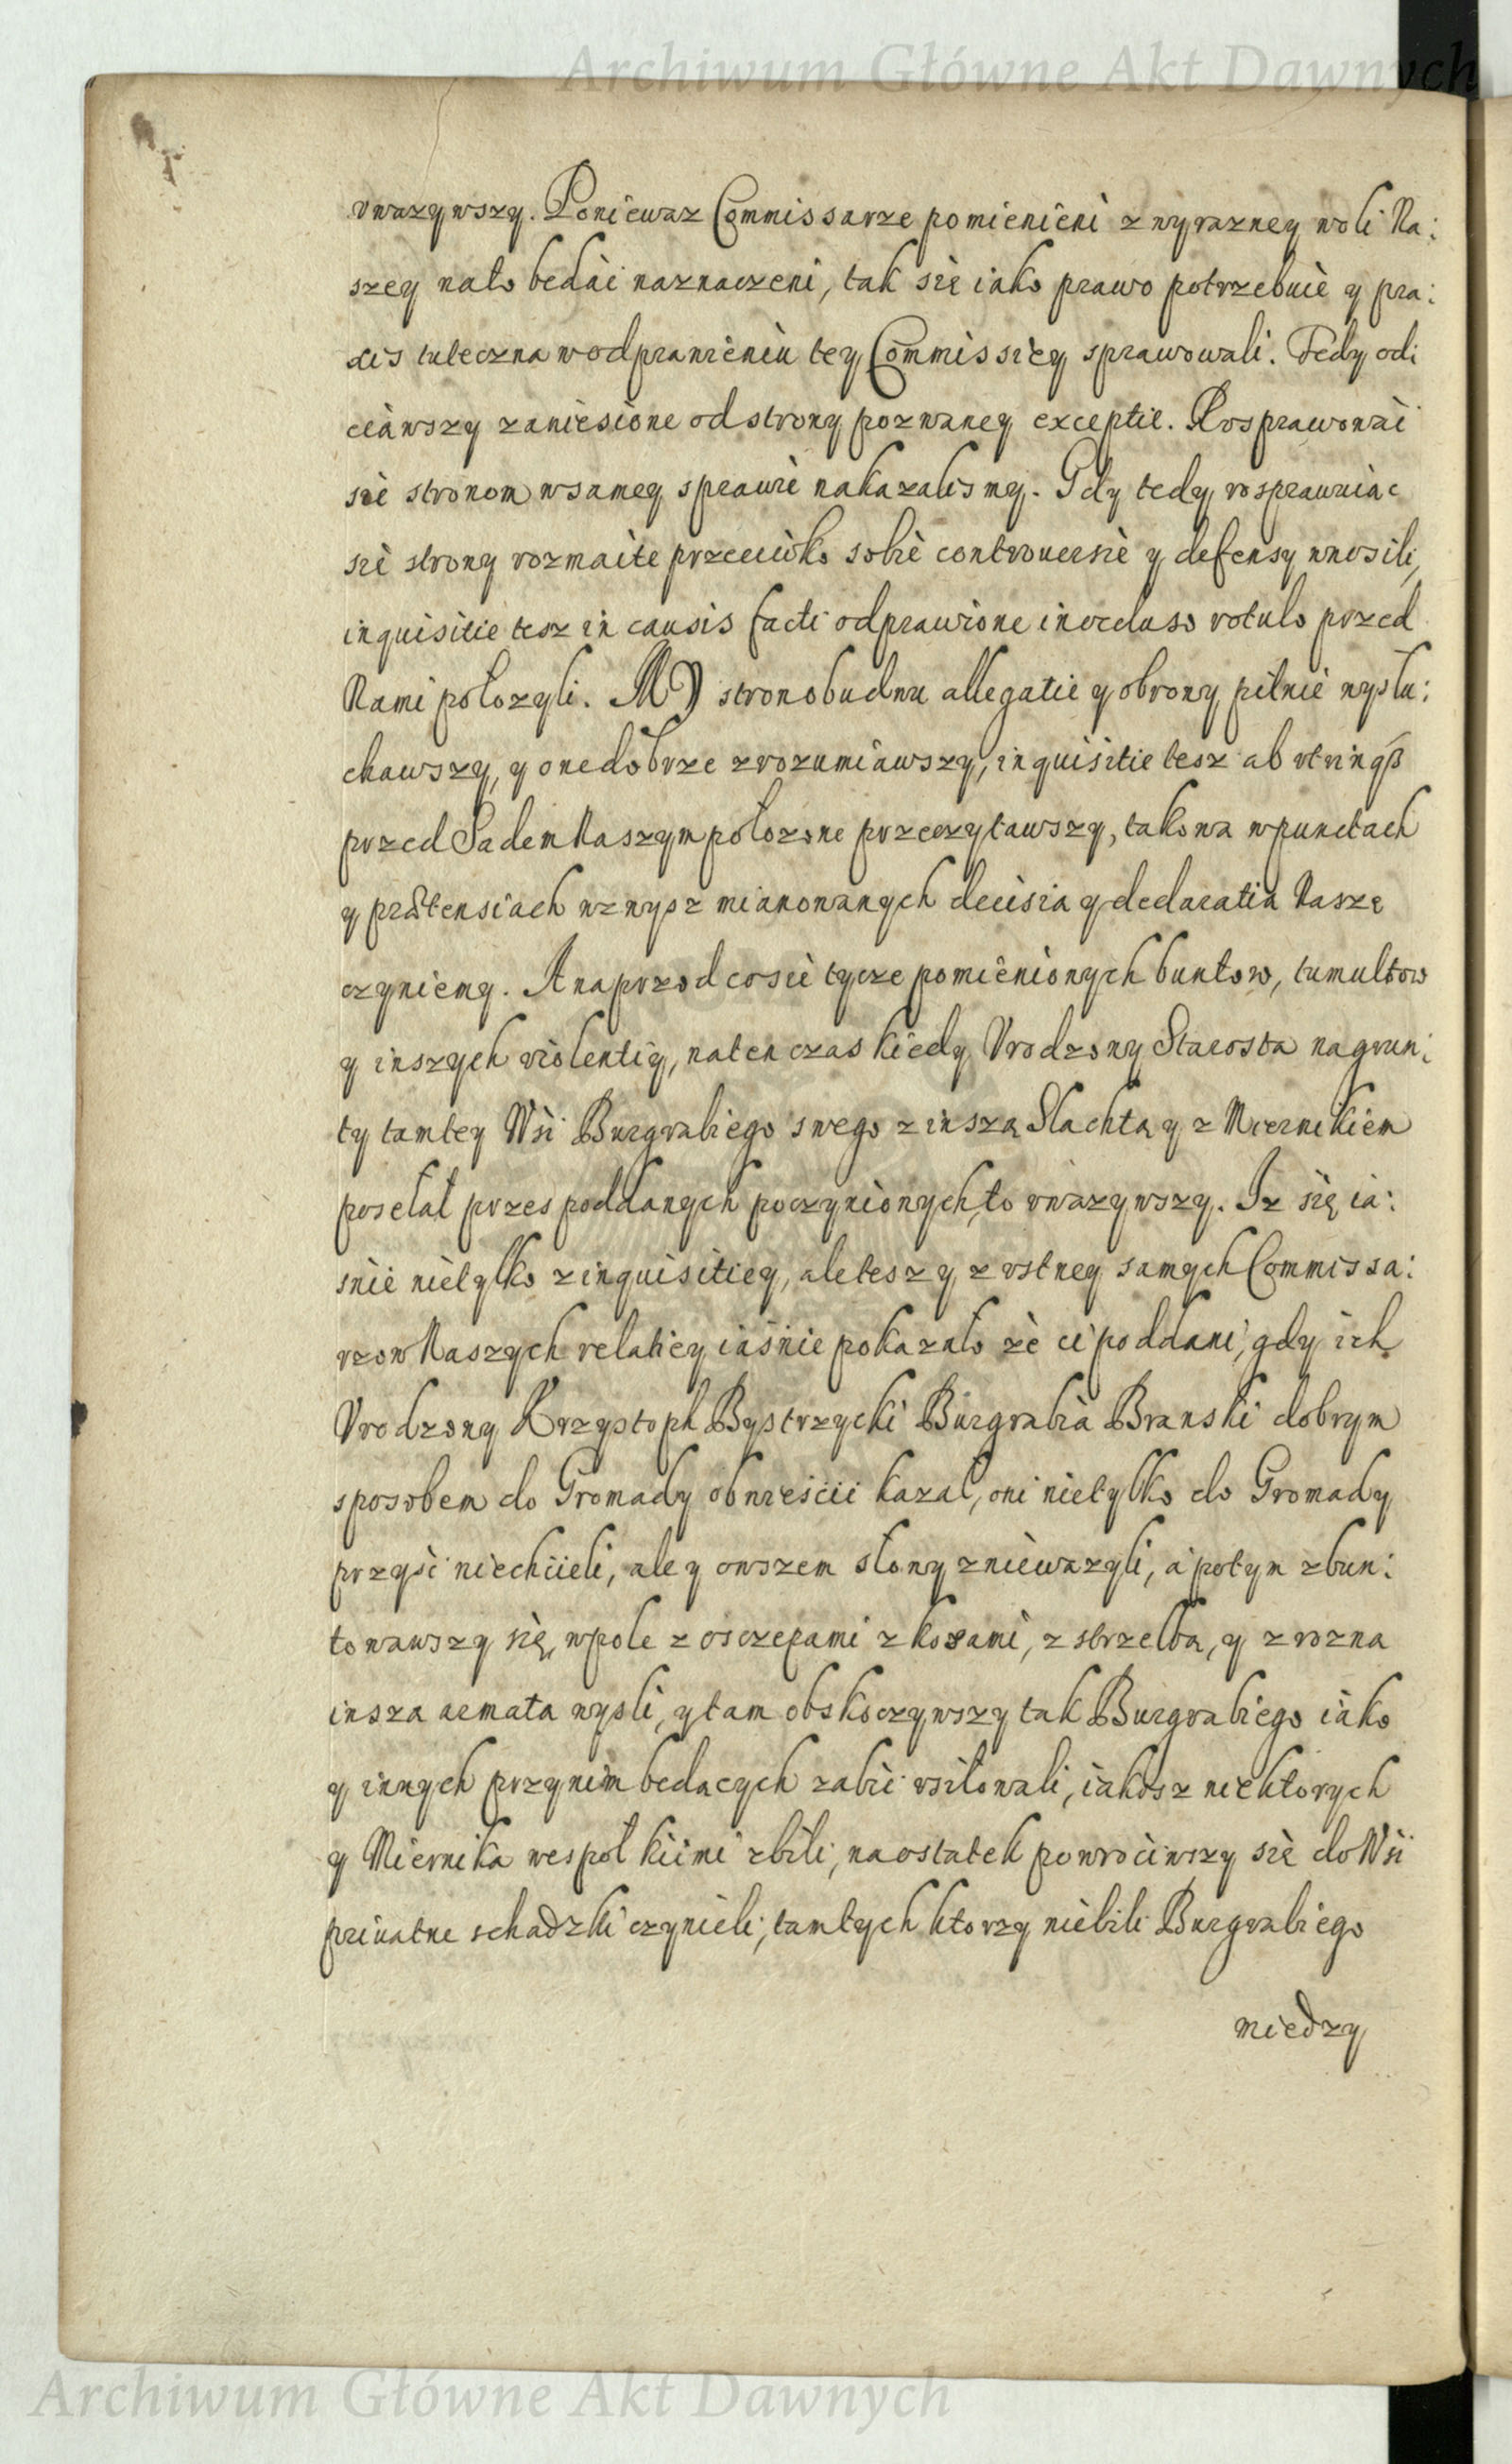 Archiwum Główne Akt Dawnych
vwazywszy. Poniewaz Commissarze pomienieni z wyrazney woli Na:
szey nato bedąc naznaczeni, tak się iako prawo potrzebuie y pra:
xis tuteczna w odprawieniu tey Commissiey sprawowali. Tedy odi
ciąwszy zaniesione od strony pozwaney exceptie. Rosprawowąc
się stronom wsamey sprawie nakazalismy. Gdy tedy rosprawuiąc
się strony rozmaite przeciwko sobie controuersie y defensy wnosili,
inquisitie tesz in causis facti odprawione in occluso rotulo przed
Nami położyli. MY stron obudwu allegatie y obrony pilnie wysłu:
chawszy, y one dobrze zrozumiawszy, inquisitie tesz ab vtrinqß
przed Sadem Naszym położone przeczytawszy, takowa w punctach
y prætensiach wzwysz mianowanych decisia y declaratia Naszę
czyniemy. A naprzod co się tycze pomienionych buntow, tumultow
y inszych violentiy, naten czas kiedy Vrodzony Starosta na grun:
ty tamtey Wsi Burgrabiego swego z inszą Slachtą y z Miernikiem
posełał przes poddanych poczynionych, to vwazywszy. Iz się ia:
snie nietylko z inquisitiey, ale tesz y z vstney samych Commissa:
rzow Naszych relatiey iasnie pokazało że ci poddani, gdy ich
Vrodzony Krzysztoph Bystrzycki Burgrabia Branski dobrym
sposobem do Gromady obwieścic kazał, oni nietylko do Gromady
przyść niechcieli, ale y owszem słowy zniewazyli, a potym zbun:
towawszy się, w pole z osczepami z kosami, z strzelbą, y z rozna
insza armata wysli, y tam obskoczywszy tak Burgrabiego iako
y innych przy nim bedących zabić vsiłowali, iakosz niektorych
y Miernika wespoł kiimi zbili, na ostatek powrociwszy się do Wsi
priuatne schadzki czynieli, tamtych ktorzy niebili Burgrabiego
miedzy
Archiwum Główne Akt Dawnych